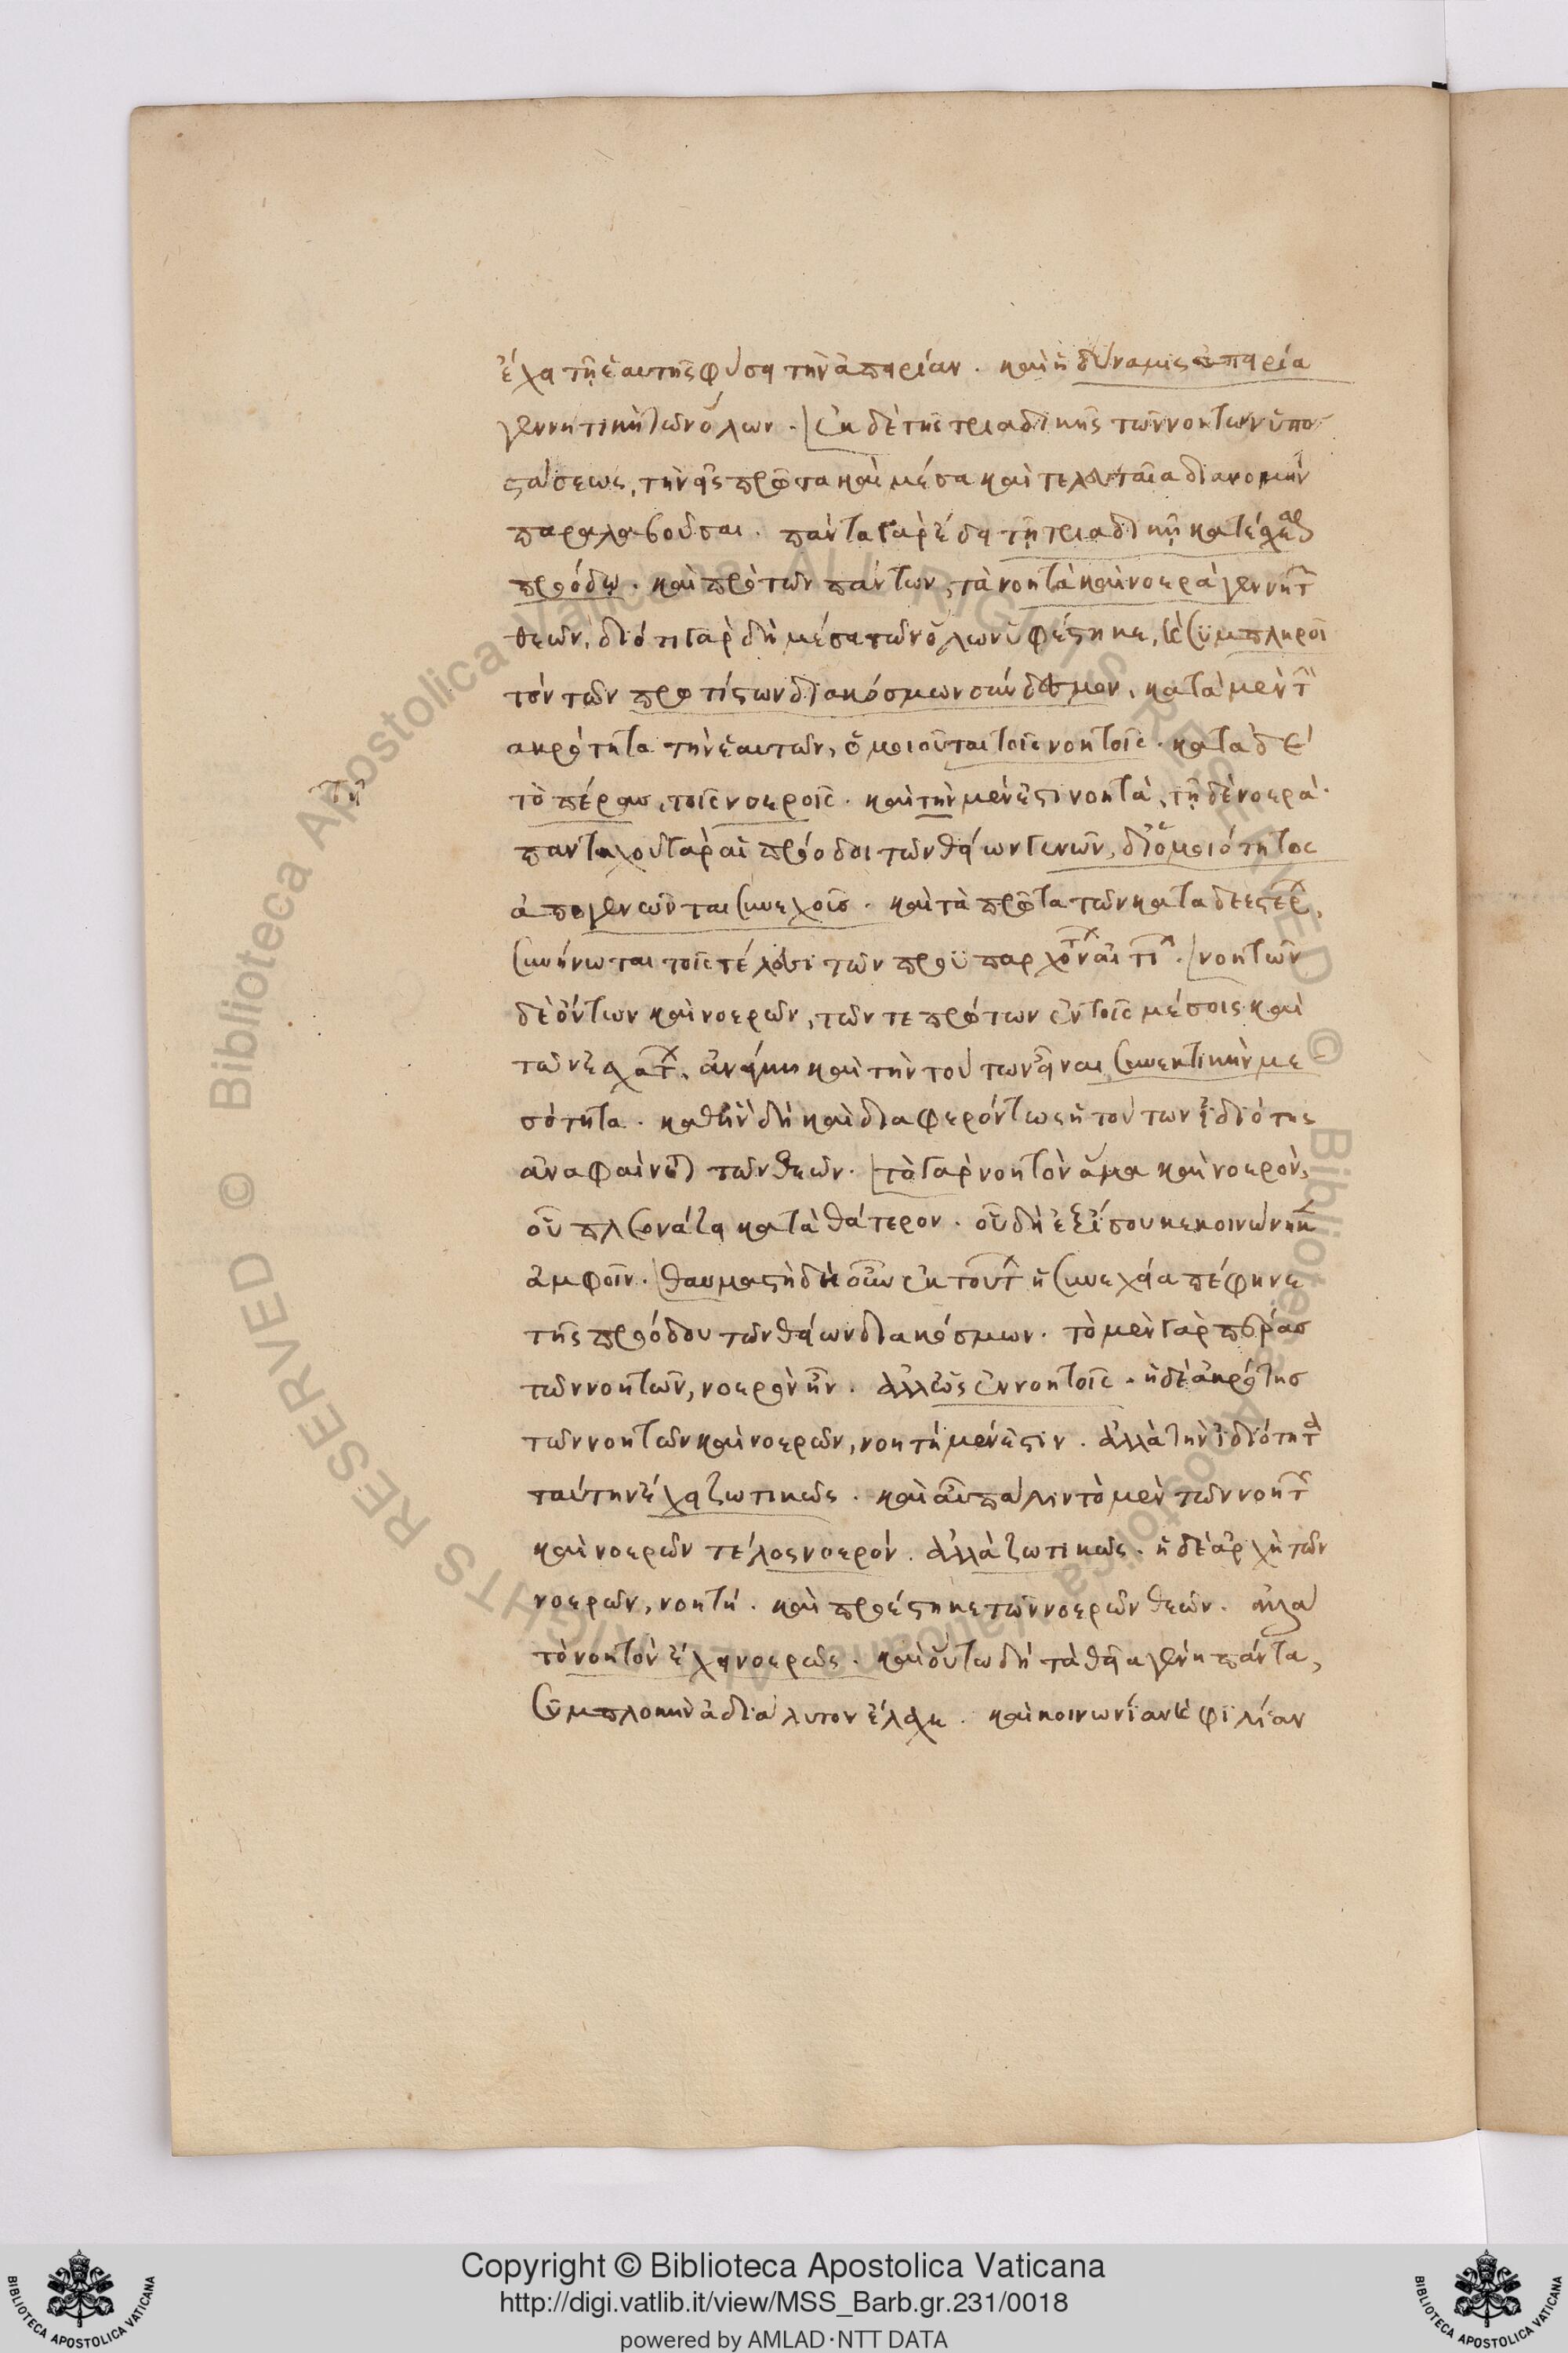 ἔχει τῇ ἑαυτῆς φύσει τὴν ἀπειρίαν. καὶ ἡ δύναμις ἀπειρία
γεννητικὴ τῶν ὅλων. ἐκ δὲ τῆς τριαδικῆς τῶν νοητῶν ὑπο
στάσεως, τὴν εἰς πρῶτα καὶ μέσα καὶ τελευταῖα διανομὴν
παραλαβοῦσαι. πάντα γὰρ ἔδει τῇ τριαδικῇ
προόδῳ. καὶ πρὸ τῶν πάντων, τὰ νοητὰ καὶ νοερὰ γένη τῶν
θεῶν, διότι γὰρ δὴ μέσα τῶν ὅλων ὑφέστηκε, καὶ συμπληροῖ
τὸν τῶν πρωτίστων διακόσμων σύνδεσμον, κατὰ μὲν τὴν
ἀκρότητα τὴν ἑαυτῶν, ὁμοιοῦται τοῖς νοητοῖς. κατὰ δὲ
τὸ πέρας, τοῖς νοεροῖς. καὶ τὴν μέν ἐστι νοητὰ, τῇ δὲ νοερά.
τῇ
πανταχοῦ γὰρ αἱ πρόοδοι τῶν θείων γενῶν, δι' ὁμοιότητος
ἀπογεννῶνται συνεχοῖς. καὶ τὰ πρῶτα τῶν καταδεεστέρων,
συνήνωται τοῖς τέλεσι τῶν προϋπαρχόντων αἰτίων. νοητῶν
δὲ ὄντων καὶ νοερῶν, τῶν τε πρώτων ἐν τοῖς μέσοις καὶ
τῶν ἐσχάτων, ἀνάγκη καὶ τὴν τούτων εἶναι συνεκτικὴν με
σότητα. καθ' ἣν δὴ καὶ διαφερόντως ἡ τούτων ἰδιότης
ἀναφαίνεται τῶν θεῶν. τὸ γὰρ νοητὸν ἅμα καὶ νοερὸν,
οὐ πλεονάζει κατὰ θάτερον. οὐδὴ ἐξίσου κεκοινώνηκεν
ἀμφοῖν. θαυμαστὴ δὴ οὖν ἐκ τούτων ἡ συνέχεια πέφηνε
τῆς προόδου τῶν θείων διακόσμων. τὸ μὲν γὰρ πέρας
τῶν νοητῶν, νοερὸν ἦν. ἀλλ' ὡς ἐν νοητοῖς. ἡ δὲ ἀκρότης
τῶν νοητῶν καὶ νοερῶν, νοητὴ μέν ἐστιν. ἀλλὰ τὴν ἰδιότητα
ταύτην ἔχει ζωτικῶς. καὶ αὖ πάλιν τὸ μὲν τῶν νοητῶν
καὶ νοερῶν τέλος νοερόν. ἀλλὰ ζωτικῶς. ἡ δὲ ἀρχὴ τῶν
νοερῶν, νοητή. καὶ προέστηκε τῶν νοερῶν θεῶν. ἀλλὰ
τὸ νοητὸν ἔχει νοερῶς. καὶ οὕτω δὴ τὰ θεῖα γένη πάντα,
συμπλοκὴν ἀδιάλυτον ἔλαχε. καὶ κοινωνίαν καὶ φιλίαν
Copyright © Biblioteca Apostolica Vaticana
http://digi.vatlib.it/view/MSS_Barb.gr.231/0018
powered by AMLAD·NTT DATA
BIBLIOTECA APOSTOLICA VATICANA
BIBLIOTECA APOSTOLICA VATICANA